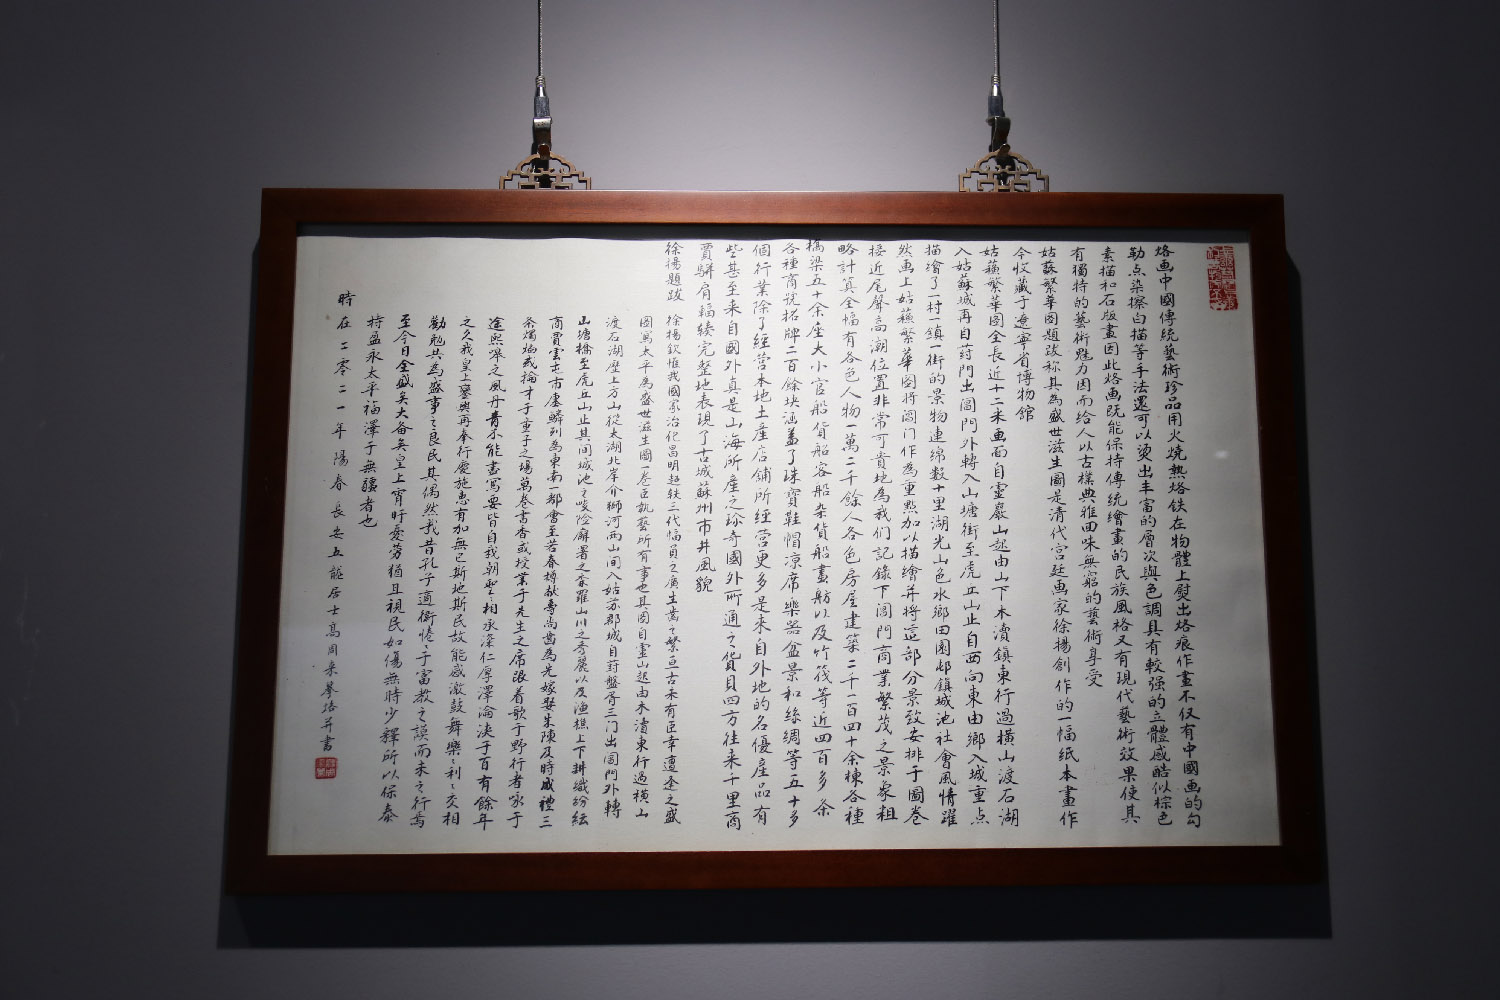 烙画中國傳統藝術珍品用火燒熱烙铁在物體上熨出烙痕作畫不仅有中國画的勾
勒点染擦白描等手法還可以燙出丰富的層次與色調具有較强的立體感酷似棕色
素描和石版畫因此烙画既能保持傳統繪畫的民族風格又有現代藝術效果使其
有獨特的藝術魅力因而给人以古樸典雅回味無窮的藝術享受
姑蘇繁華图題跋称其為盛世滋生圖是清代宫廷画家徐揚創作的一幅纸本畫作
今收藏于遼寧省博物館
姑蘇繁華图全長近十二米画面自靈巖山起由山下木瀆鎮東行過横山渡石湖
入姑蘇城再自葑門出閶門外轉入山塘街至虎丘山止自西向東由鄉入城重点
描繪了一村一鎮一街的景物連绵数十里湖光山色水鄉田園邨鎮城池社會風情躍
然画上姑蘇繁華图将閶门作為重點加以描繪并将這部分景致安排于圖卷
接近尾聲高潮位置非常可貴地為我们記錄下閶門商業繁茂之景象粗
略計算全幅有各色人物一萬二千餘人各色房屋建築二千一百四十余棟各種
橋梁五十余座大小官船貨船客船杂貨船畫舫以及竹筏等近四百多条
各種商號招牌二百餘块涵盖了珠寶鞋帽凉席樂器盆景和絲綢等五十多
個行業除了經营本地土產店鋪所經营更多是来自外地的名優產品有
些甚至来自國外真是山海所產之珍奇國外所通之貨貝四方往来千里商
賈駢肩輻輳完整地表現了古城蘇州市井風貌
徐揚題跋 徐揚欽惟我國家治化昌明超轶三代幅員之廣生齒之繁亘古未有臣幸遭逢之盛
圖寫太平為盛世滋生圖一卷臣執藝所有事也其图自靈山起由木瀆東行過横山
渡石湖歷上方山從太湖北岸介獅河兩山間入姑苏郡城自葑盤胥三门出閶門外轉
山塘橋至虎丘山止其间城池之峻险廨署之森羅山川之秀麗以及漁樵上下耕織紛紜
商賈雲屯市廛鱗列為東南一都會至若春樽献壽尚齒為先嫁娶朱陳及時成禮三
条燭焰或掄才于童子之場萬卷書香或授業于先生之席跟着歌于野行者家于
途熙皞之風丹青不能盡寫要皆自我朝聖聖相承深仁厚澤淪浹于百有餘年
之久我皇上鑾輿再奉行慶施惠有加無已斯地斯民故能感激鼓舞樂樂利利交相
勸勉共為盛事之良民其偶然哉昔孔子適衛惓惓于富教之謨而未之行焉
至今日全盛矣大备矣皇上宵旰憂勞猶且視民如傷無時少釋所以保泰
持盈永太平福澤于無疆者也
時在二零二一年陽春長安五龍居士高周來摹描并書